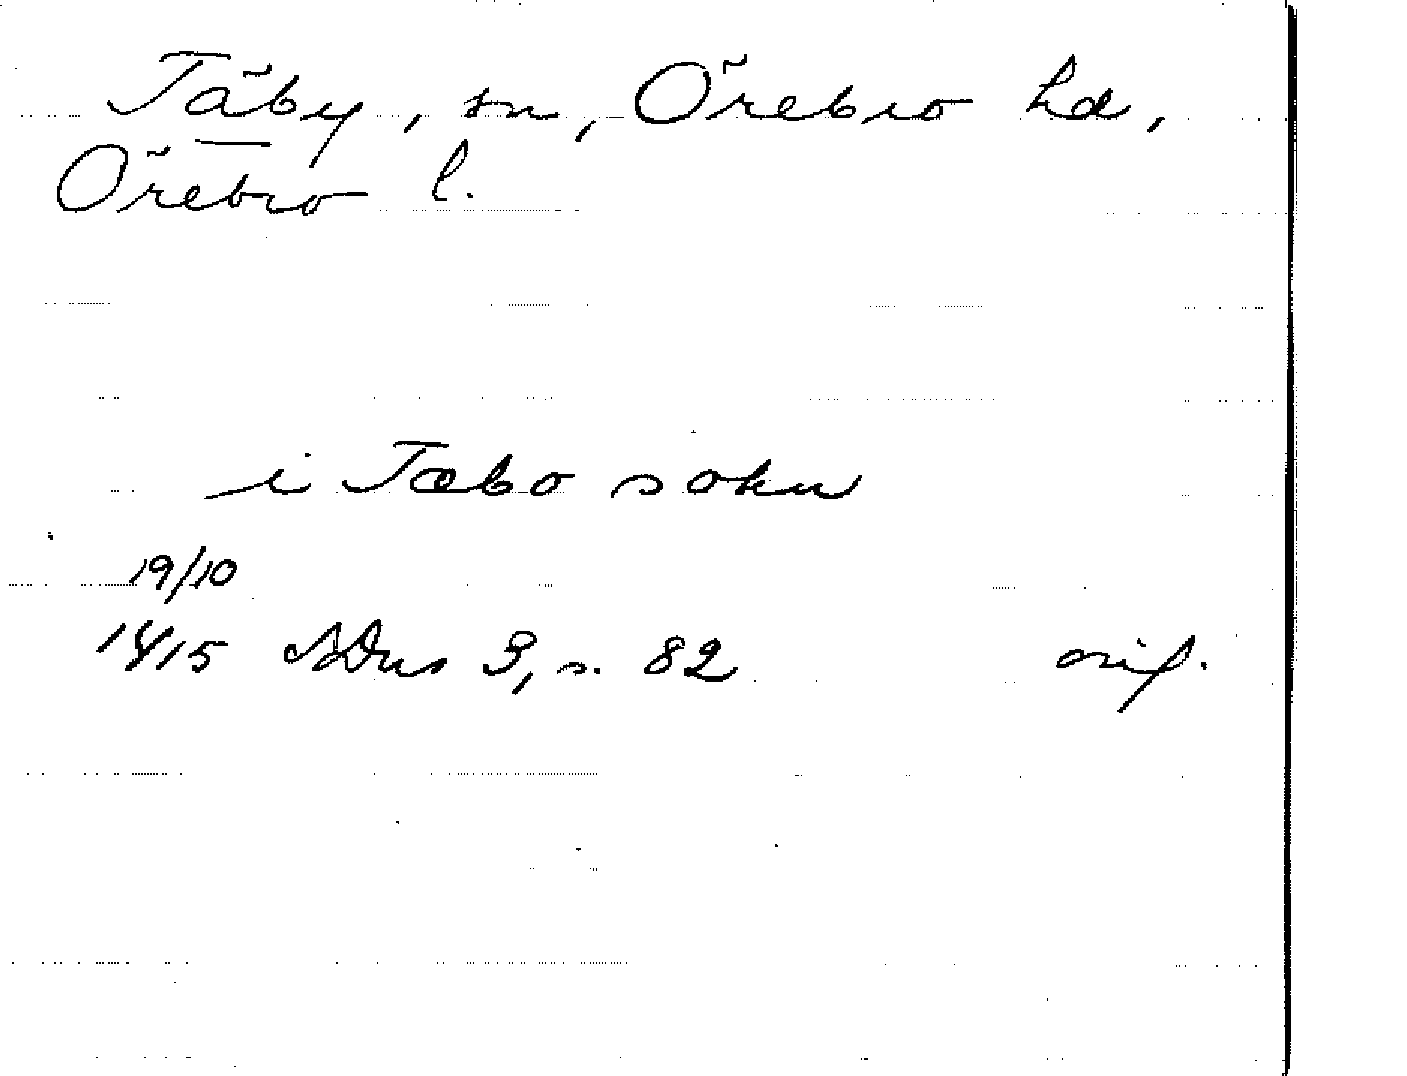 Täby, sn, Örebro hd,
Örebro l.
i Tæbo sokn
19/10
1415 SDns 3, s. 82 orig.